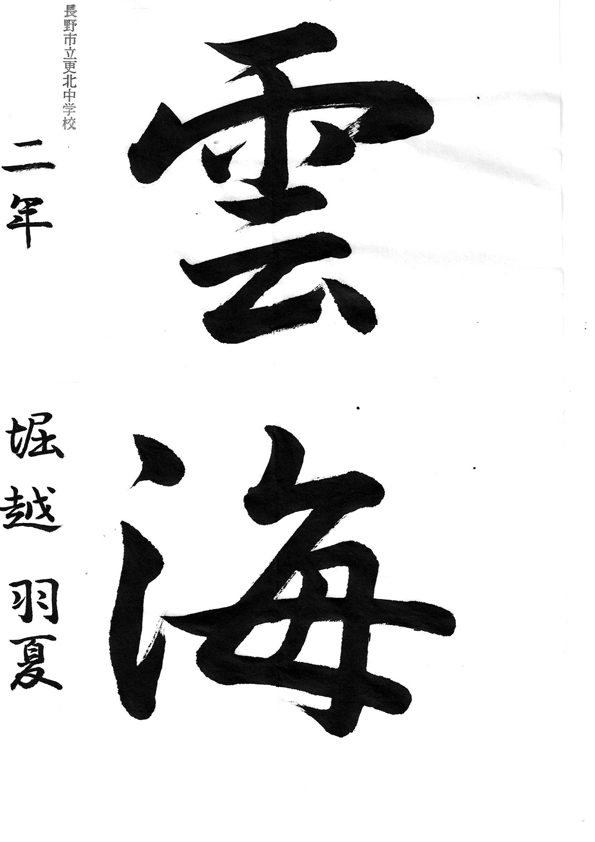 雲海
長野市立更北中学校
二年 堀越 羽夏